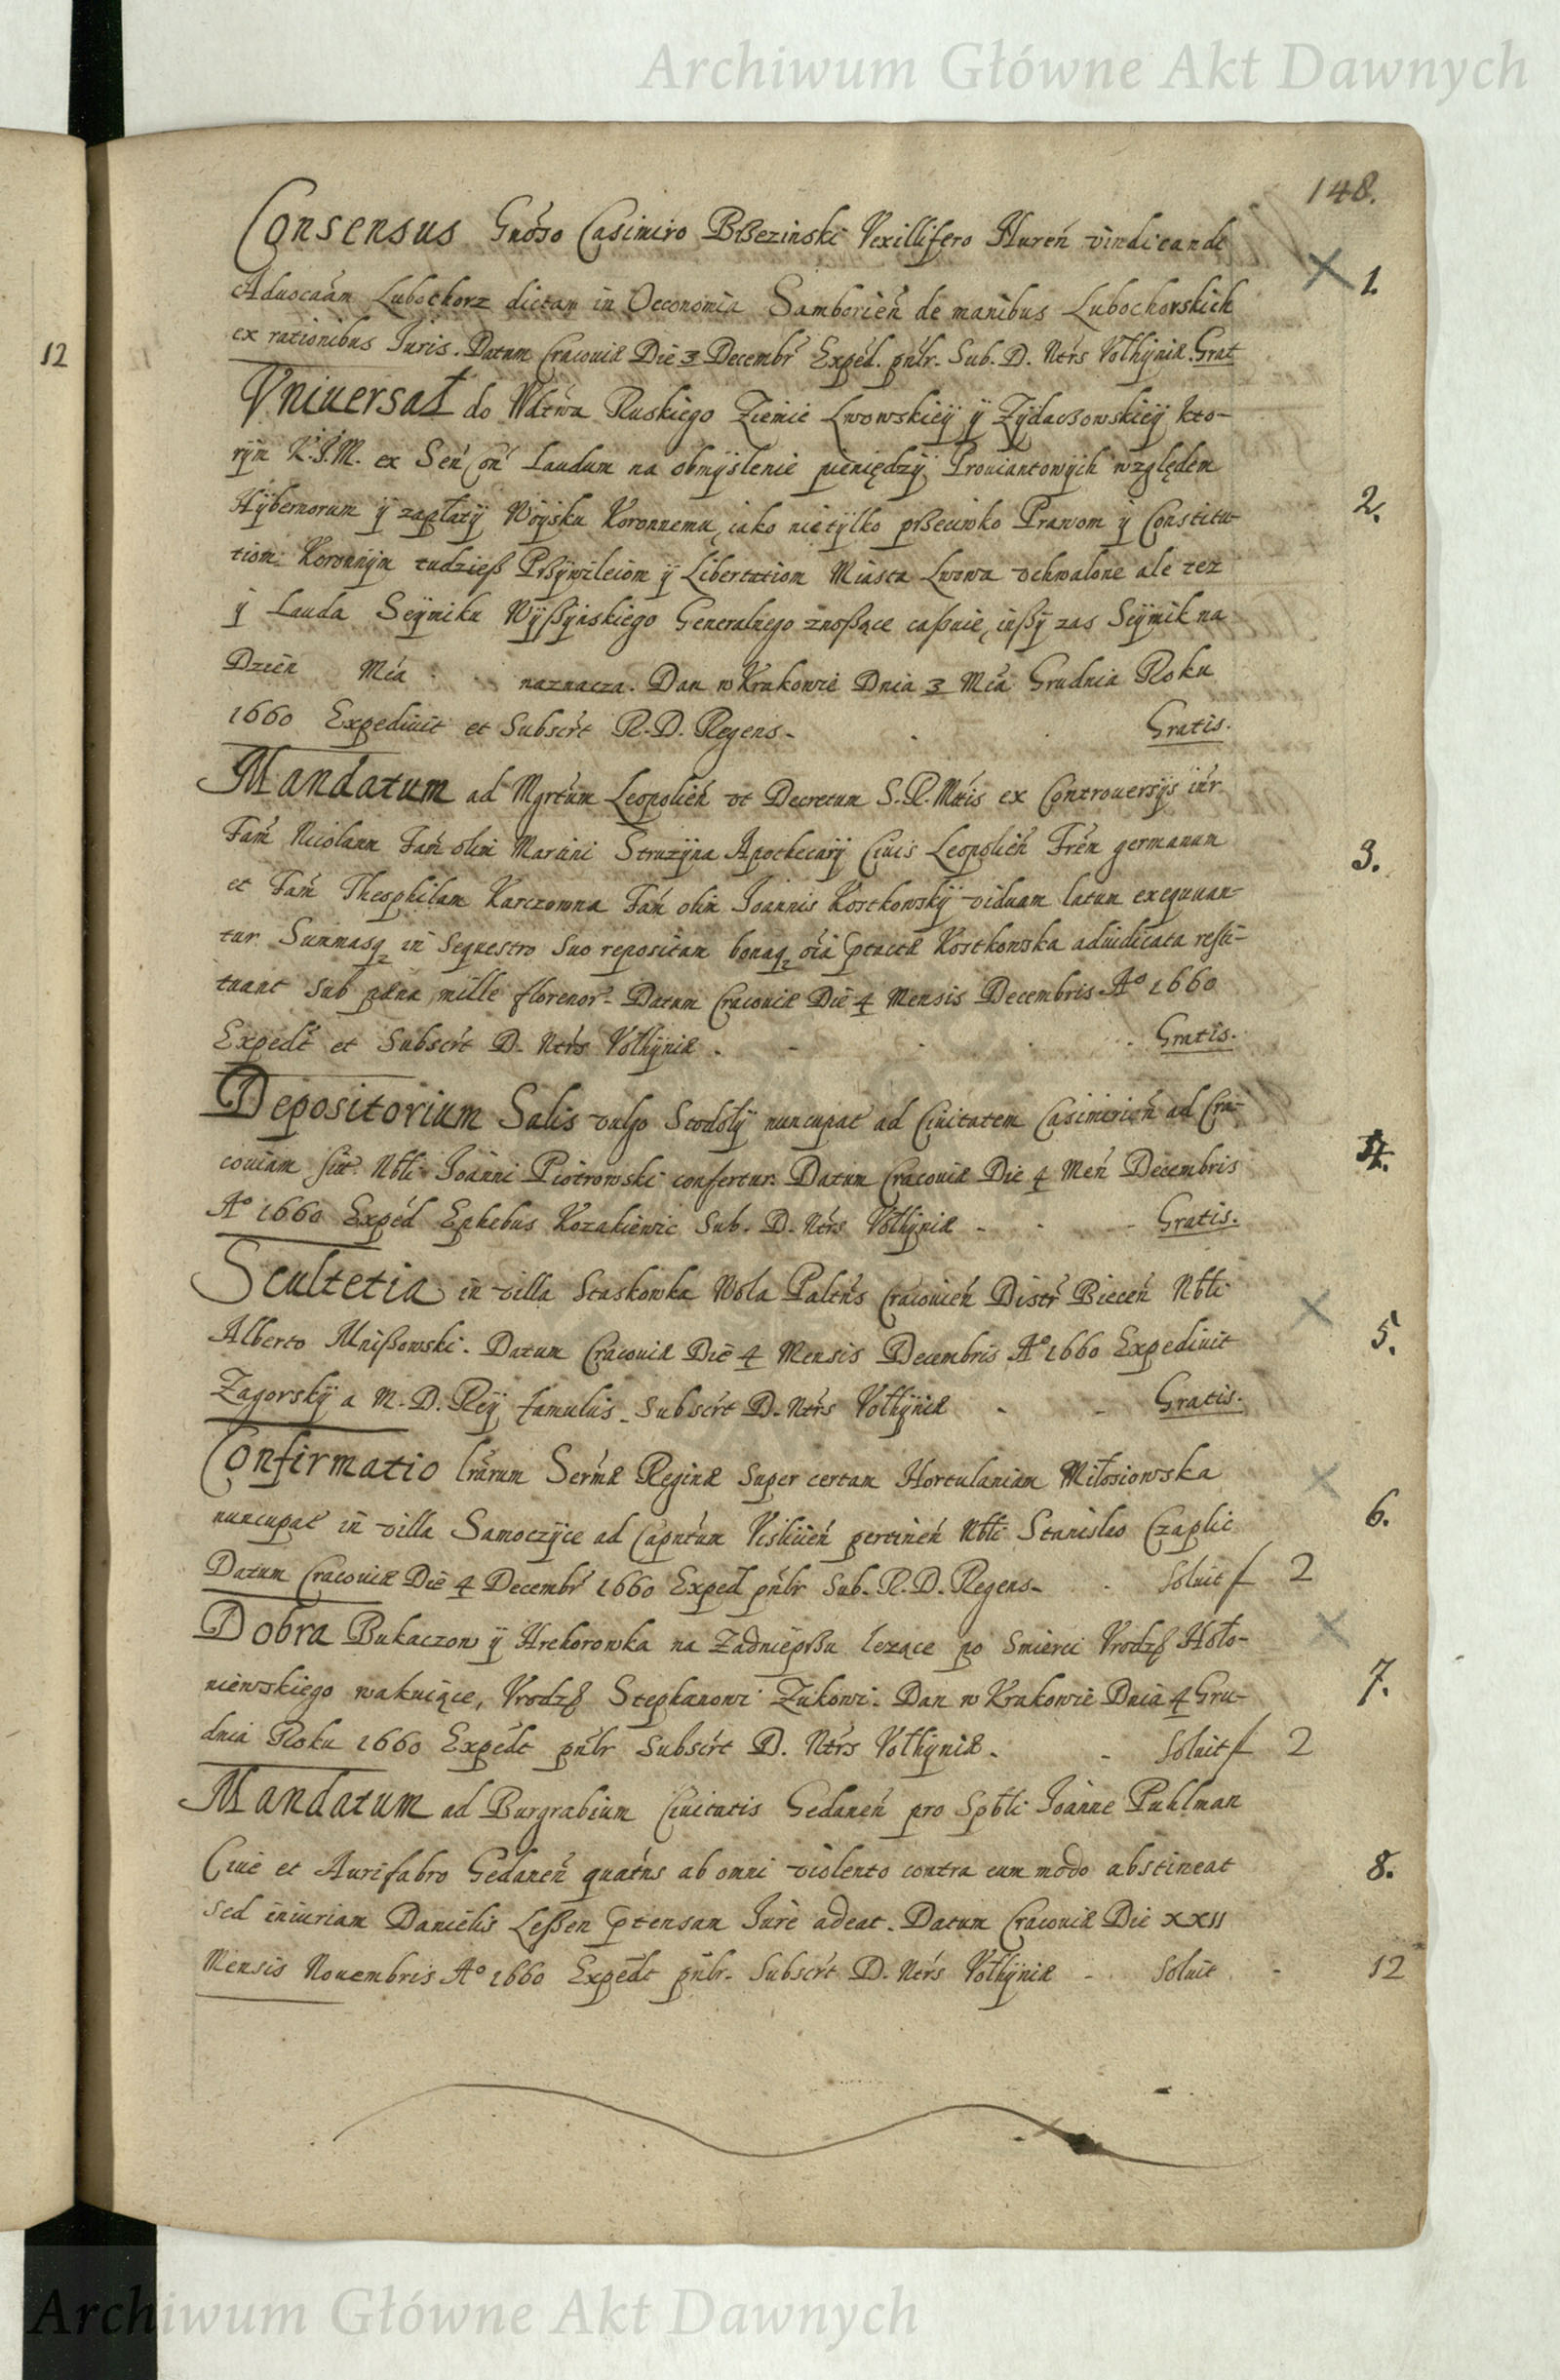 Archiwum Główne Akt Dawnych
148.
Consensus Gnoso Casimiro Bßezinski Vexillifero Huren vindicandi
Aduocaam Lubochorz dictam in Oeconomia Samborien de manibus Lubochorskich
1.
ex rationibus Iuris. Datum Cracouiæ Die 3 Decembr Exped. pnlr. Sub. D. Ntrs Vołhyniæ. Grat
12
Vniuersał do Wdztwa Ruskiego Ziemie Lwowskieÿ ÿ Zÿdaczowskieÿ kto-
rÿm K.J.M. ex Sen Con Laudum na obmÿslenie pieniędzÿ Prouiantowÿch względem
Hÿbernorum ÿ zapłatÿ Woÿsku Koronnemu, iako nietÿlko pßeciwko Prawom ÿ Constitu-
2.
tiom: Koronnÿm tudzieß Pßÿwileiom ÿ Libertatiom Miasta Lwowa vchwalone ale tez
ÿ Lauda Seÿmiku Wÿßÿnskiego Generalnego znoßące caßuie, inßÿ zas Seÿmik na
Dzien Mca naznacza. Dan w Krakowie Dnia 3 Mca Grudnia Roku
1660 Expediuit et Subscrt R.D. Regens. Gratis.
Mandatum ad Mgrtum Leopolien vt Decretum S.R.Mtis ex Controuersÿs intr
Fam Nicolaum Fam olim Martini Struzÿna Apothecarÿ Ciuis Leopolien Fren germanum
3.
et Fam Theophilam Karczowna Fam olim Joannis Kostkowskÿ viduam latum exequuan-
tur Summasq in Sequestro Suo repositam bonaq oia ptactæ Kostkowska adiudicata resti-
tuant sub pæna mille florenor. Datum Cracouiæ Die 4 Mensis Decembris Ao 1660
Expedt et Subscrt D. Ntrs Vołhÿniæ. Gratis.
Depositorium Salis vulgo Stodołÿ nuncupat ad Ciuitatem Casimirien ad Cra-
4.
couiam sit. Nbli Joanni Piotrowski confertur. Datum Cracouiæ Die 4 Men Decembris
Ao 1660 Exped Ephebus Kozakiewic Sub. D. Ntrs Vołhÿniæ Gratis.
Scultetia in villa Staskowka Wola Paltns Cracouien Distr Biecen Nbli
5.
Alberto Mnißowski. Datum Cracouiæ Die 4 Mensis Decembris Ao 1660 Expediuit
Zagorskÿ a M.D. Reÿ famulus. Subscrt D. Ntrs Vołhÿniæ Gratis.
Confirmatio lrarum Sermæ Reginæ super certam Hortulaniam Miłosiowska
6.
nuncupat in villa Samoczÿce ad Capntum Vislicien pertinen Nbli Stanislao Czaplic
Datum Cracouiæ Die 4 Decembr 1660 Exped pnlr Sub. R.D. Regens. Soluit f 2
Dobra Bukaczow ÿ Hrehorowka na Zadnieprßu lezące po smierci Vrodzo Hoło-
7.
niewskiego wakuiące, Vrodzo Stephanowi Zukowi. Dan w Krakowie Dnia 4 Gru-
dnia Roku 1660 Expedt pnlr Subscrt D. Ntrs Vołhÿniæ. Soluit f 2
Mandatum ad Burgrabium Ciuitatis Gedanen pro Spbli Joanne Puhlman
8.
Ciue et Aurifabro Gedanen quatns ab omni violento contra eum modo abstineat
sed iniuriam Danielis Leßen ptensam Iure adeat. Datum Cracouiæ Die XXII
Mensis Nouembris Ao 1660 Expedt pnlr. Subscrt D. Ntrs Vołhÿniæ Soluit 12
Archiwum Główne Akt Dawnych